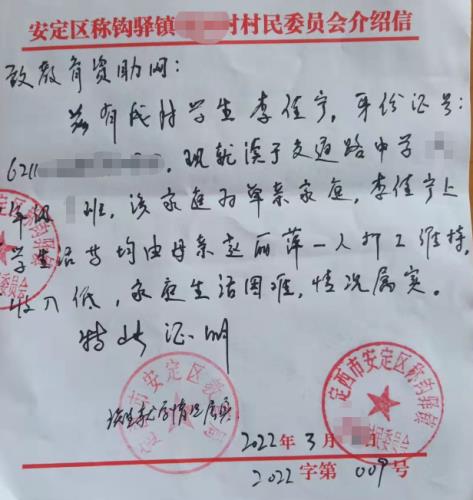 安定区称钩驿镇村村民委员会介绍信
致教育资助网：
兹有我村学生李佳宁，身份证号：
6211，现就读于交通路中学
年级班，该家庭为单亲家庭，李佳宁上
学生活费均由母亲赵丽萍一人打工维持，
收入低，家庭生活困难，情况属实。
特此证明
情况属实
定西市安定区教
定西市安定区称钩驿镇
委员会
2022年3月日
2022字第009号